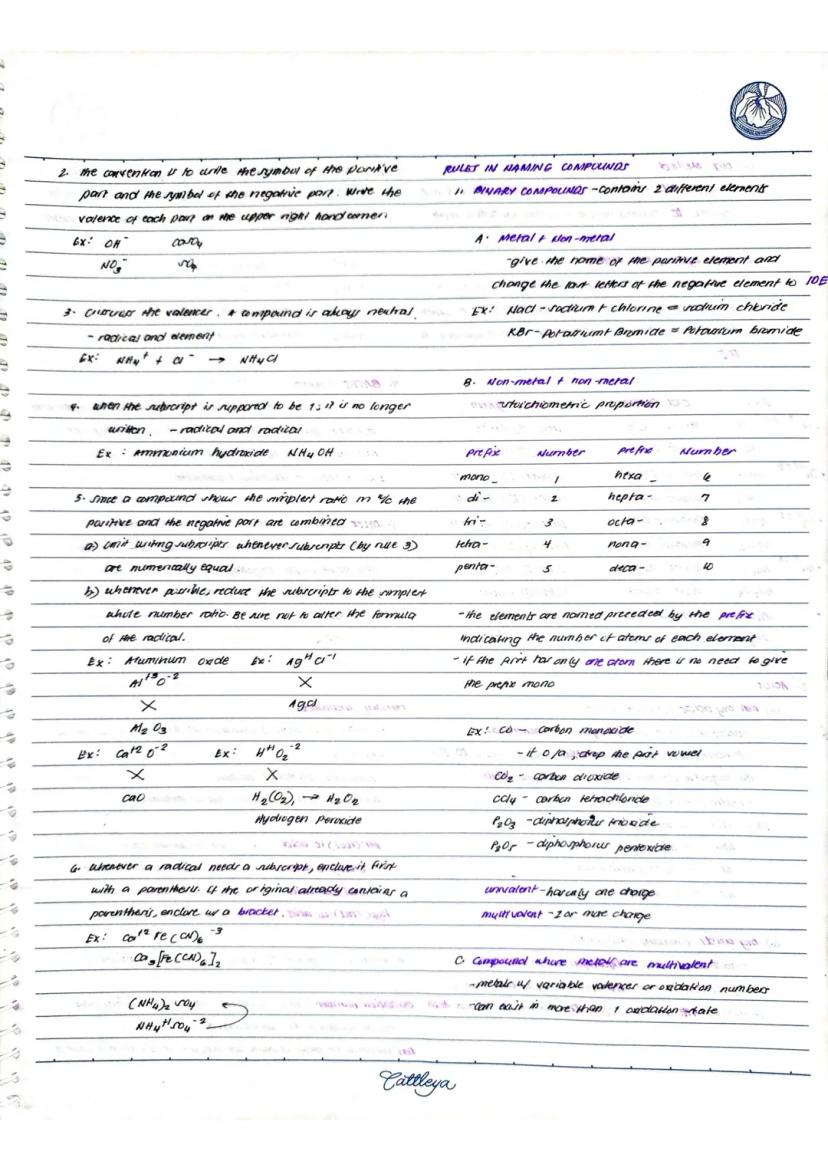 2. the convention is to write the symbol of the positive
part and the symbol of the negative part. Write the
valence of each part on the upper right hand corner.
Ex: OH⁻ CaSO₄
NO₃⁻ SO₄
3. Crisscross the valences. A compound is always neutral.
- radical and element
Ex: NH₄⁺ + Cl⁻ → NH₄Cl
4. when the subscript is supposed to be 1; it is no longer
written. - radical and radical
Ex: Ammonium hydroxide NH₄OH
5. since a compound shows the simplest ratio in w/c the
positive and the negative part are combined
a) omit writing subscripts whenever subscripts (by rule 3)
are numerically equal.
b) whenever possible, reduce the subscripts to the simplest
whole number ratio. Be sure not to alter the formula
of the radical.
Ex: Aluminum oxide Ex: Ag⁺¹ Cl⁻¹
Al⁺³ O⁻²
AgCl
Al₂O₃
Ex: Ca⁺² O⁻² Ex: H⁺¹ O₂⁻²
CaO H₂(O₂), → H₂O₂
Hydrogen Peroxide
6. Whenever a radical needs a subscript, enclose it first
with a parenthesis. If the original already contains a
parenthesis, enclose w/ a bracket.
Ex: Ca⁺² Fe(CN)₆⁻³
Ca₃[Fe(CN)₆]₂
(NH₄)₂ SO₄
NH₄⁺¹ SO₄⁻²
RULES IN NAMING COMPOUNDS
1. BINARY COMPOUNDS - contains 2 different elements
A. Metal + Non-metal
- give the name of the positive element and
change the last letters of the negative element to IDE
Ex: NaCl - sodium + chlorine = sodium chloride
KBr - Potassium + Bromide = Potassium bromide
B. Non-metal + non-metal
- stoichiometric proportion
Prefix Number Prefix Number
mono- 1 hexa- 6
di- 2 hepta- 7
tri- 3 octa- 8
tetra- 4 nona- 9
penta- 5 deca- 10
- the elements are named preceded by the prefix
indicating the number of atoms of each element
- if the first has only one atom there is no need to give
the prefix mono
Ex: CO - carbon monoxide
- if o/a, drop the first vowel
CO₂ - carbon dioxide
CCl₄ - carbon tetrachloride
P₂O₃ - diphosphorus trioxide
P₂O₅ - diphosphorus pentoxide
univalent - has only one charge
multivalent - 2 or more charge
C. Compound where metals are multivalent
- metals w/ variable valences or oxidation numbers
- can exist in more than 1 oxidation state
Cattleya